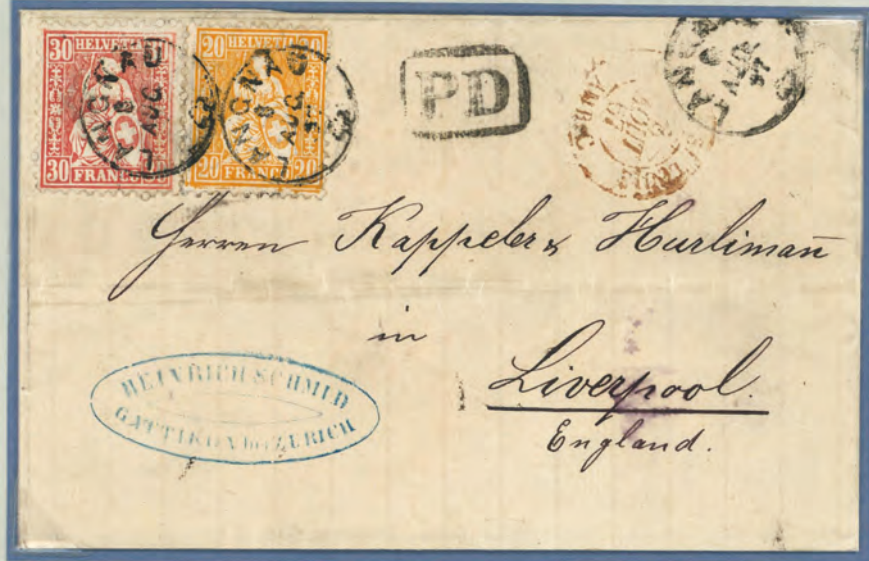 30 HELVETIA
30 FRANCO 30
20 HELVETIA 20
20 FRANCO 20
LANGNAU
8
AUG
LANGNAU
8
AUG
PD
LANGNAU
AUG
AOUT
Herren Kappeler & Hurliman̄
in
Liverpool.
England.
HEINRICH SCHMID
GATTIKON bei ZÜRICH